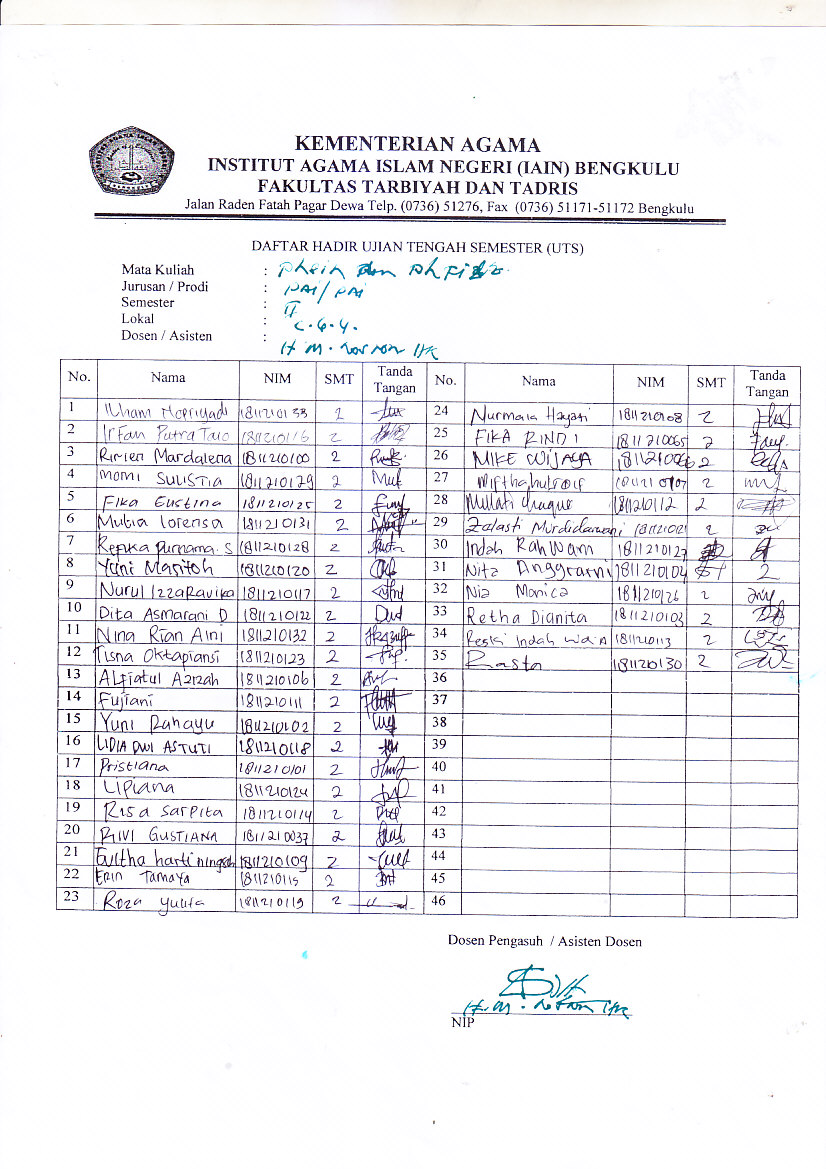 KEMENTERIAN AGAMA
INSTITUT AGAMA ISLAM NEGERI (IAIN) BENGKULU
FAKULTAS TARBIYAH DAN TADRIS
Jalan Raden Fatah Pagar Dewa Telp. (0736) 51276, Fax (0736) 51171-51172 Bengkulu
DAFTAR HADIR UJIAN TENGAH SEMESTER (UTS)
Mata Kuliah :
Jurusan / Prodi : PAI/PAI
Semester : II
Lokal : C.6.4.
Dosen / Asisten : H.M.
No. Nama NIM SMT Tanda Tangan No. Nama NIM SMT Tanda Tangan
1 Ilham 1811210133 2 24 Nurmala Hayati 1811210108 2
2 Irfan Putra 1811210116 2 25 FIKA RINDI 1811210065 2
3 Ririen Mardalena 1811210100 2 26 MIKE WIJAYA 2
4 MOMI SULISTIA 1811210129 2 27 2
5 Fika Gustina 1811210125 2 28 Millati 1811210112 2
6 Mubia Lorensa 1811210131 2 29 Zalasti 2
7 Repika Purnama. S 1811210128 2 30 Indah Rahwani 1811210127
8 Yuni Masitoh 1811210120 2 31 Nita Anggraini 1811210104
9 Nurul Izza Ravika 1811210117 2 32 Nia Monica 1811210126 2
10 Dita Asmarani D 1811210122 2 33 Retha Dianita 1811210103 2
11 Nina Rian Aini 1811210132 2 34 Reski Indah 1811210113 2
12 Tisna Oktapiansi 1811210123 2 35 Rasta 1811210130 2
13 Alfiatul Azizah 1811210106 2 36
14 Fujiani 1811210111 2 37
15 Yuni Rahayu 1811210102 2 38
16 LIDIA DWI ASTUTI 1811210118 2 39
17 Pristiana 1811210101 2 40
18 LIPIANA 1811210124 2 41
19 Risa Sarpita 1811210114 2 42
20 RIVI GUSTIANA 1811210037 2 43
21 hartiningsih 1811210109 2 44
22 Erin Tamaya 1811210115 2 45
23 Roza Yulita 1811210119 2 46
Dosen Pengasuh / Asisten Dosen
H.M.
NIP